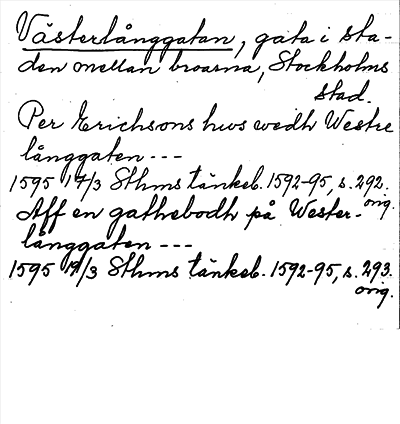 Västerlånggatan, gata i sta-
den mellan broarna, Stockholms
stad.
Per Erichsons hws wedh Westre
långgaten ---
1595 17/3 Sthms tänkeb. 1592-95, s. 292.
orig.
Aff en gathebodh på Wester-
långgaten ---
1595 19/3 Sthms tänkeb. 1592-95, s. 293.
orig.